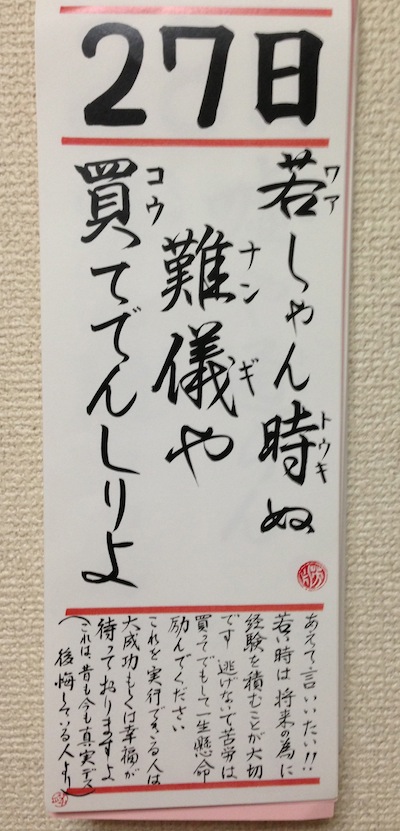 27日
若しゃん時ぬ
ワア
トゥキ
難儀や
ナンギ
買てでんしりよ
コウ
あえて言いたい!!
若い時は将来の為に
経験を積むことが大切
です 逃げないで苦労は
買ってでもして一生懸命
励んでください
これを実行できる人は
大成功もしくは幸福が
待っておりますよ
(これは、昔も今も真実デス
後悔している人より)